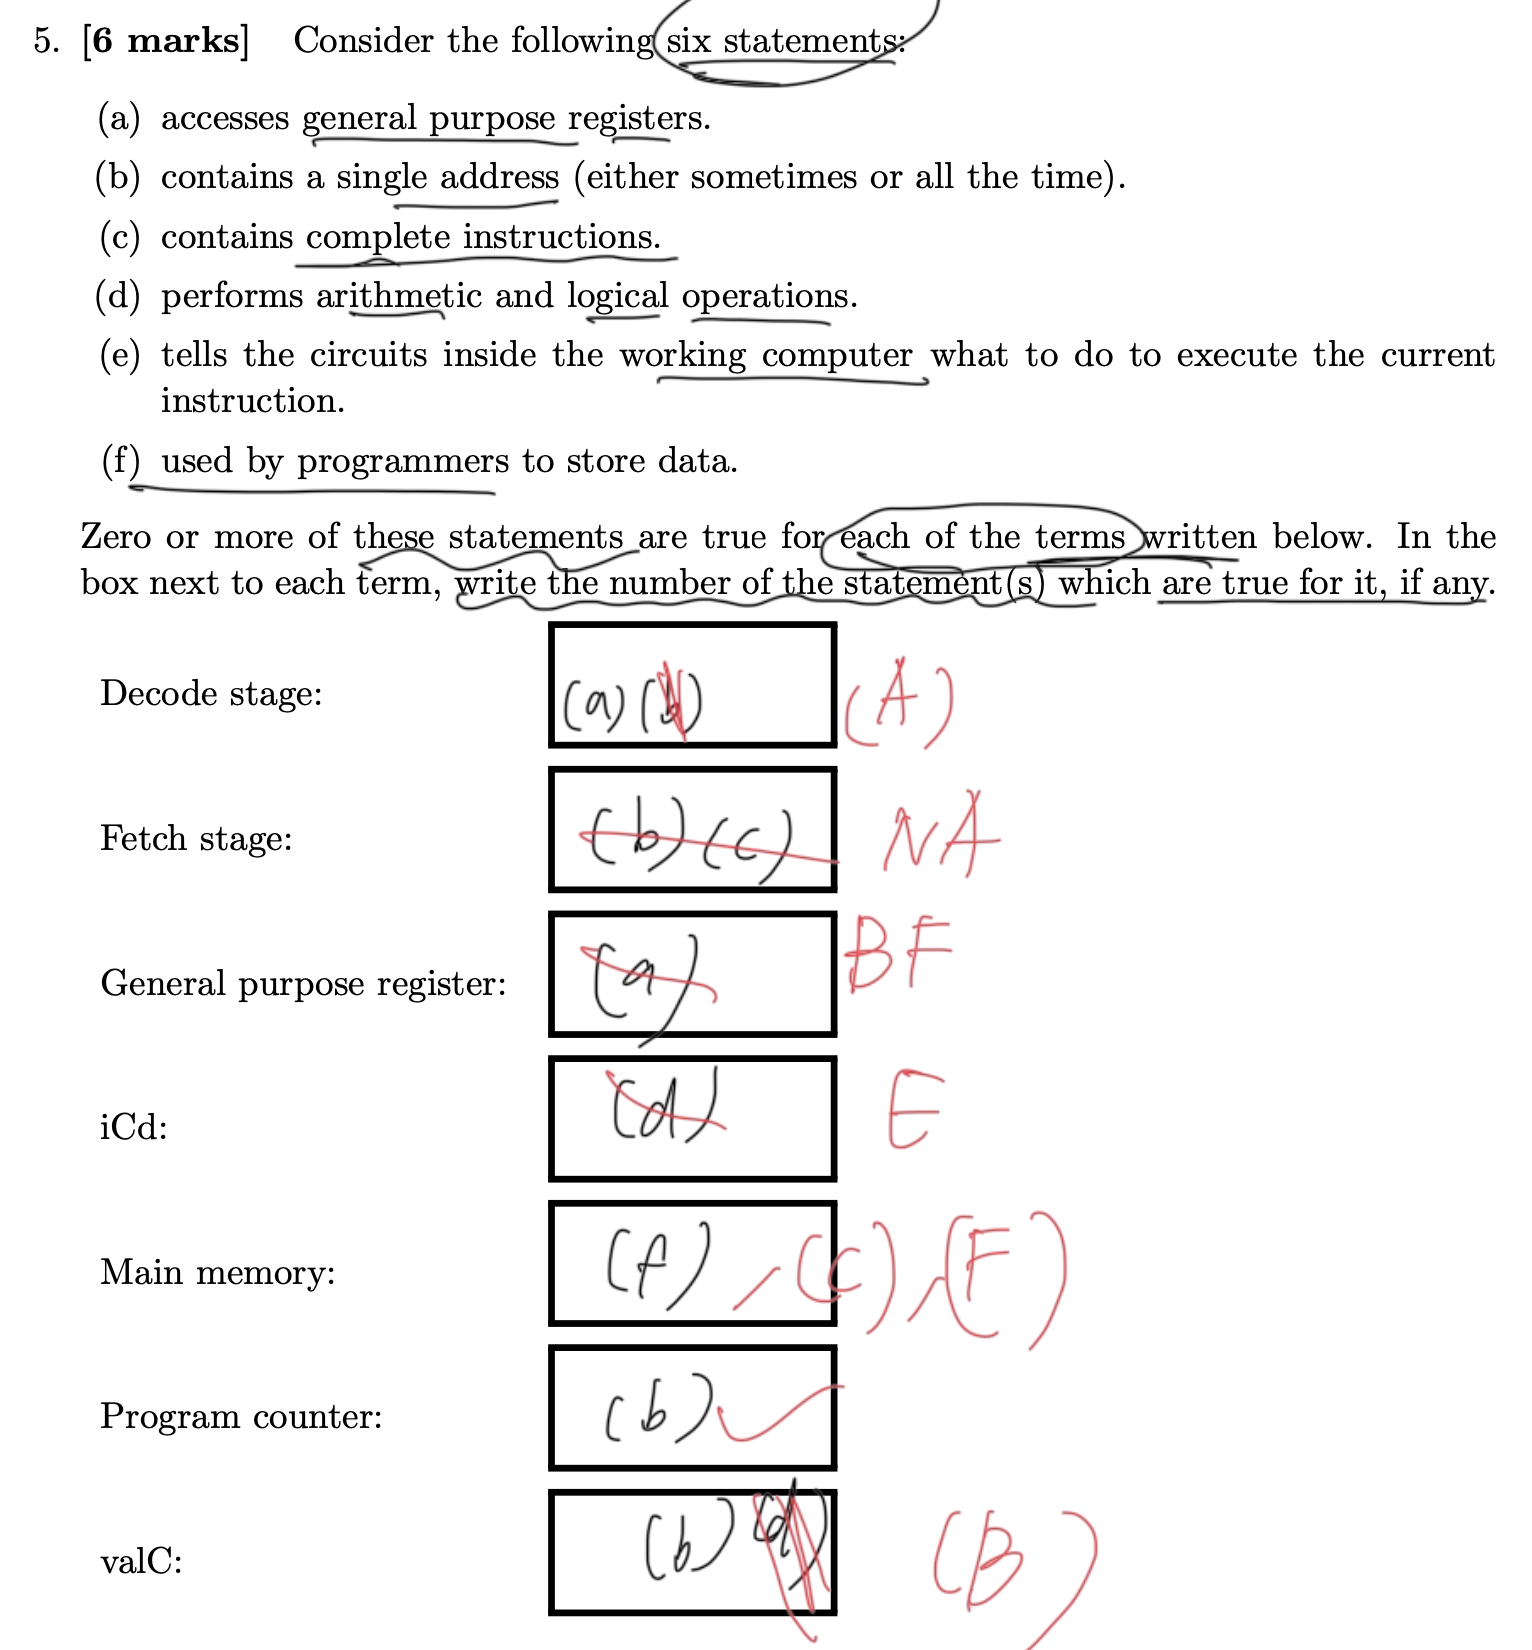 5. [6 marks] Consider the following six statements:
(a) accesses general purpose registers.
(b) contains a single address (either sometimes or all the time).
(c) contains complete instructions.
(d) performs arithmetic and logical operations.
(e) tells the circuits inside the working computer what to do to execute the current
instruction.
(f) used by programmers to store data.
Zero or more of these statements are true for each of the terms written below. In the
box next to each term, write the number of the statement(s) which are true for it, if any.
Decode stage: (a) (b) (A)
Fetch stage: (b) (c) NA
General purpose register: (a) BF
iCd: (d) E
Main memory: (f), (c), (F)
Program counter: (b)
valC: (b) (d) (B)